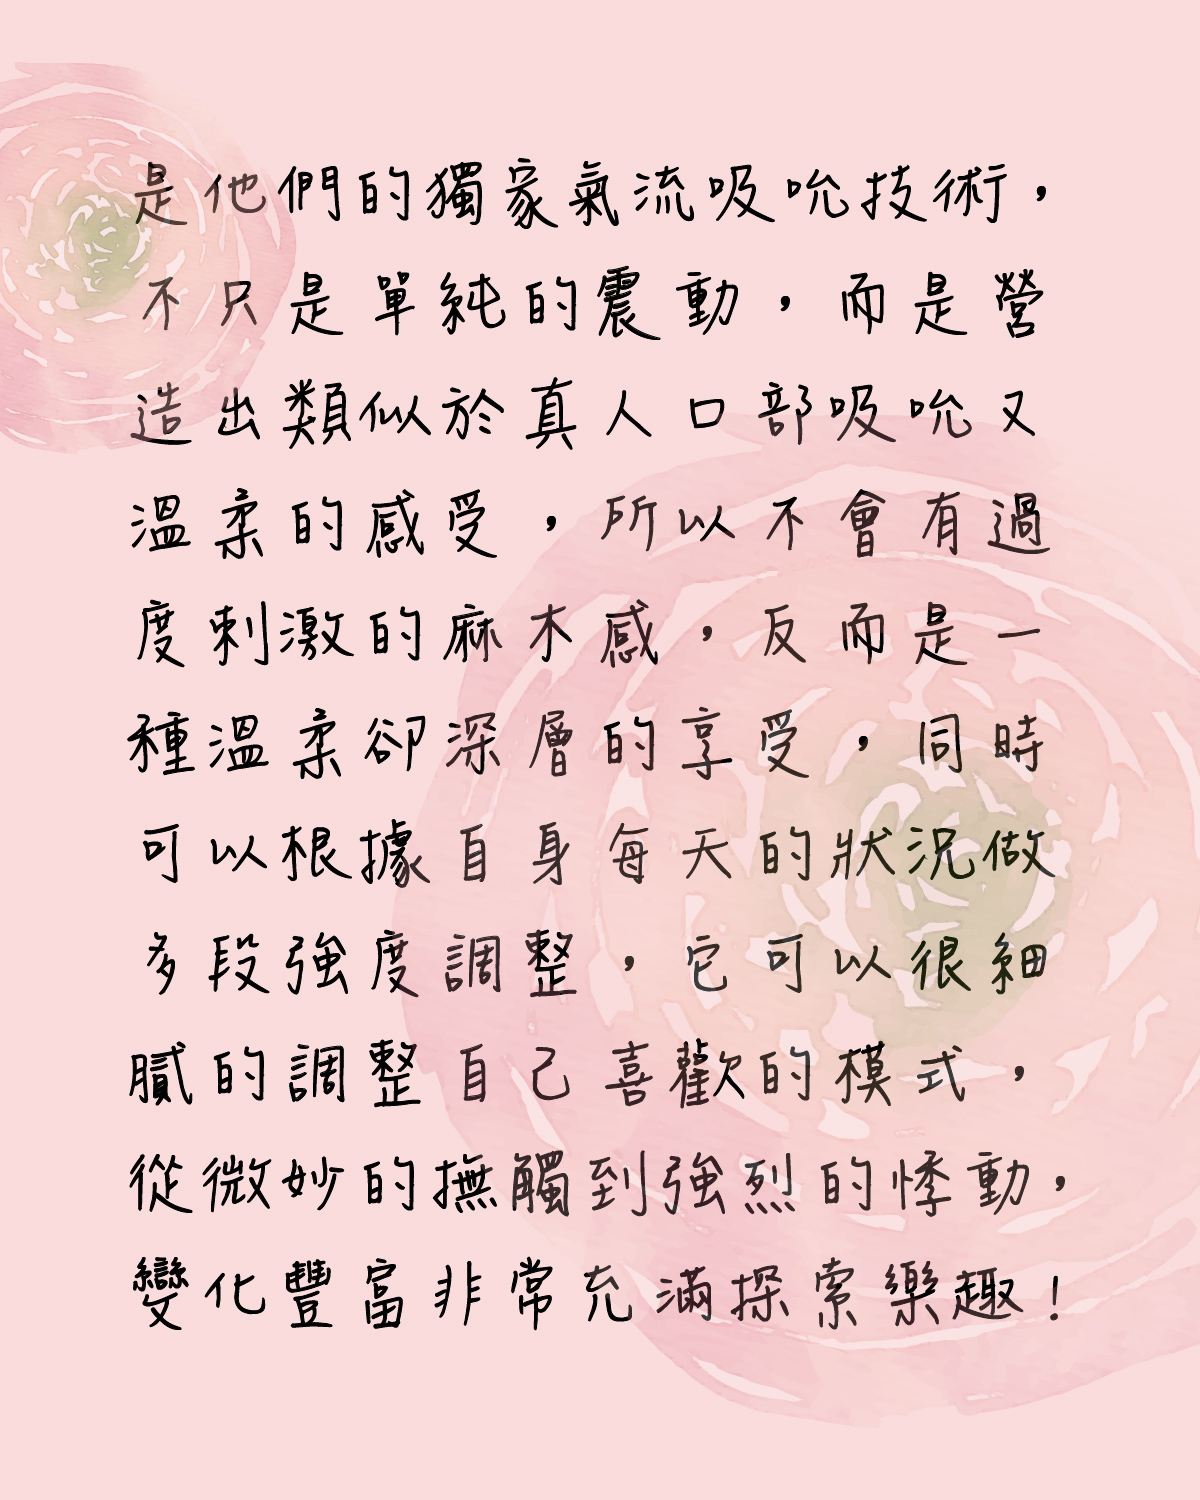 是他們的獨家氣流吸吮技術，
不只是單純的震動，而是營
造出類似於真人口部吸吮又
溫柔的感受，所以不會有過
度刺激的麻木感，反而是一
種溫柔卻深層的享受，同時
可以根據自身每天的狀況做
多段強度調整，它可以很細
膩的調整自己喜歡的模式，
從微妙的撫觸到強烈的悸動，
變化豐富非常充滿探索樂趣！